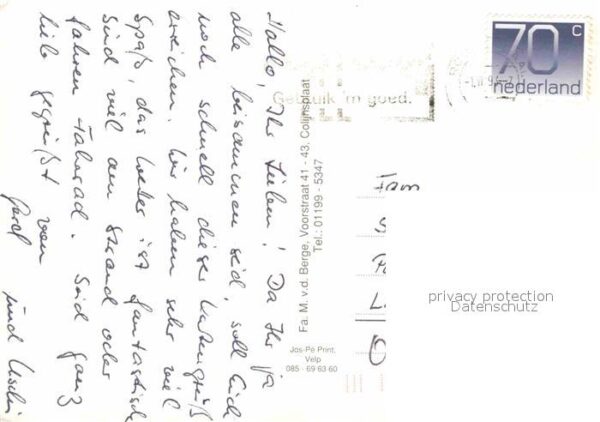 Hallo, Ihr Lieben! Da Ihr ja
alle beisammen seid, soll Euch
noch schnell dieser Kartengruß
erreichen. Wir haben sehr viel
Spaß, das Wetter ist fantastisch
Sind viel am Strand oder
fahren Fahrrad. Seid ganz
lieb gegrüßt von
Gerd und Uschi
Fa. M. v.d. Berge, Voorstraat 41 - 43, Colijnsplaat
Tel.: 01199 - 5347
Jos-Pé Print.
Velp
085 - 69 63 60
70 c
nederland
goed.
Fam
privacy protection
Datenschutz